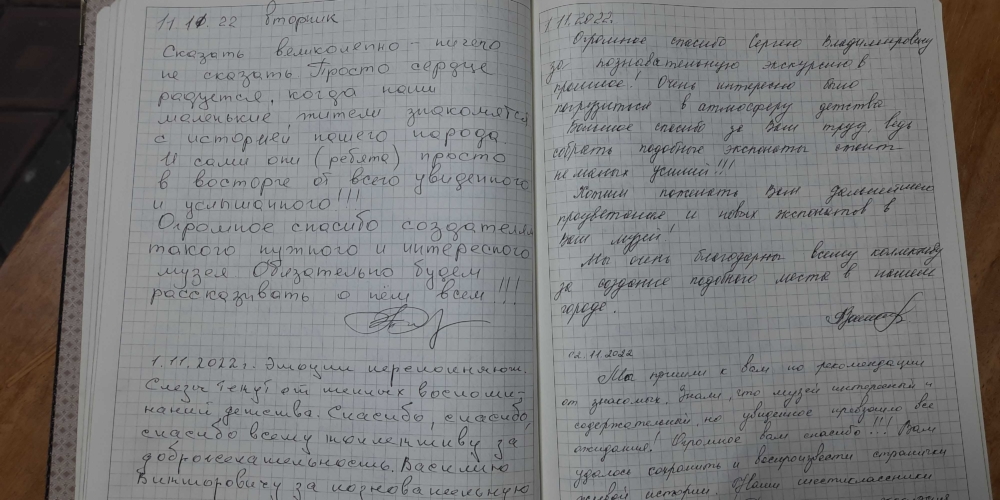 11.11.22 вторник
Сказать великолепно - ничего
не сказать. Просто сердце
радуется, когда наши
маленькие жители знакомятся
с историей нашего народа.
И сами они (ребята) просто
в восторге от всего увиденного
и услышанного!!!
Огромное спасибо создателям
такого нужного и интересного
музея. Обязательно будем
рассказывать о нём всем!!!
1.11.2022г. Эмоции переполняют.
Слезы текут от теплых воспоми-
наний детства. Спасибо, спасибо,
спасибо всему коллективу за
доброжелательность, Василию
Викторовичу за познавательную
1.11.2022.
Огромное спасибо Сергею Владимировичу
за познавательную экскурсию в
прошлое! Очень интересно было
погрузиться в атмосферу детства
Большое спасибо за Ваш труд, ведь
собрать подобные экспонаты стоит
немалых усилий!!!
Хотим пожелать Вам дальнейшего
процветания и новых экспонатов в
Ваш музей!
Мы очень благодарны всему коллективу
за создание подобного места в нашем
городе.
02.11.2022
Мы пришли к вам по рекомендации
от знакомых. Знали, что музей интересный и
содержательный, но увиденное превзошло все
ожидания! Огромное вам спасибо!!! Вам
удалось сохранить и воспроизвести странички
живой истории. Наши шестиклассники